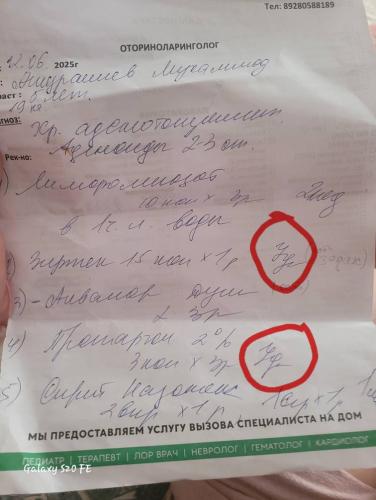 Тел: 89280588189
12.06 2025г
ОТОРИНОЛАРИНГОЛОГ
Мухаммад
5 лет.
19 кг
Хр. аденотонзиллит.
Аденоиды 2-3 ст.
Рек-но:
10 кап х 3р 2нед
в 1 ч. л. воды
Зиртек 15 кап х 1р 7д
3) - Аквамар душ
х 3р
4) Протаргол 2%
3 кап х 3р 7д
5) Спрей Назонекс
2 впр х 1р, 1 впр х 1р
МЫ ПРЕДОСТАВЛЯЕМ УСЛУГУ ВЫЗОВА СПЕЦИАЛИСТА НА ДОМ
ПЕДИАТР | ТЕРАПЕВТ | ЛОР ВРАЧ | НЕВРОЛОГ | ГЕМАТОЛОГ | КАРДИОЛОГ
Galaxy S20 FE